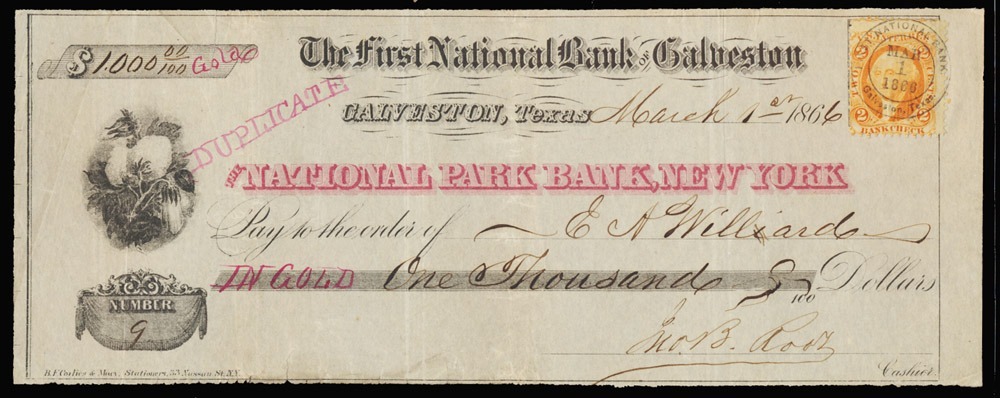 $1.000 00/100 Gold
The First National Bank of Galveston
GALVESTON, Texas March 1st 1866
DUPLICATE
NATIONAL BANK
MAR
1
1866
Galveston, Texas
2 2
BANK CHECK
THE NATIONAL PARK BANK, NEW YORK
Pay to the order of E A Williard
IN GOLD One Thousand &
/100 Dollars
NUMBER
9
Jno. B. Root
Cashier.
B.F. Corlies & Macy, Stationers, 33 Nassau St. N.Y.